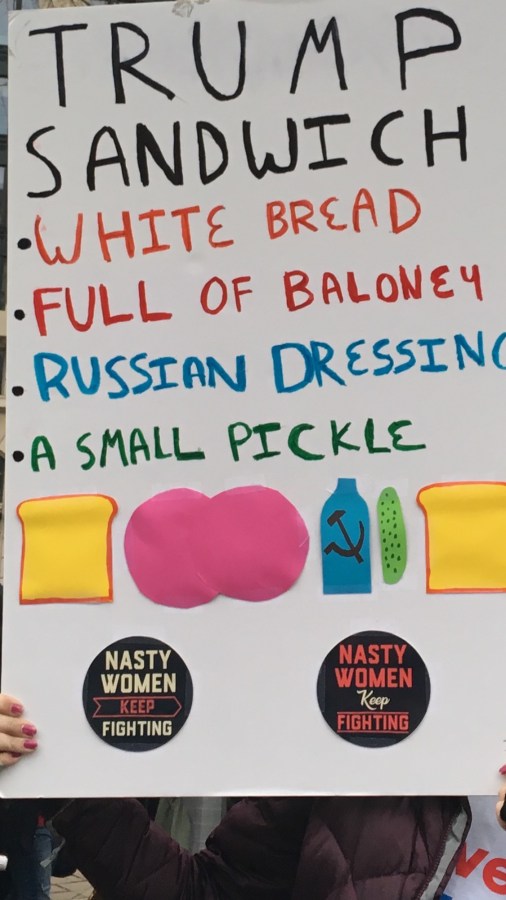 TRUMP
SANDWICH
• WHITE BREAD
• FULL OF BALONEY
• RUSSIAN DRESSING
• A SMALL PICKLE
NASTY
WOMEN
KEEP
FIGHTING
NASTY
WOMEN
Keep
FIGHTING
ve